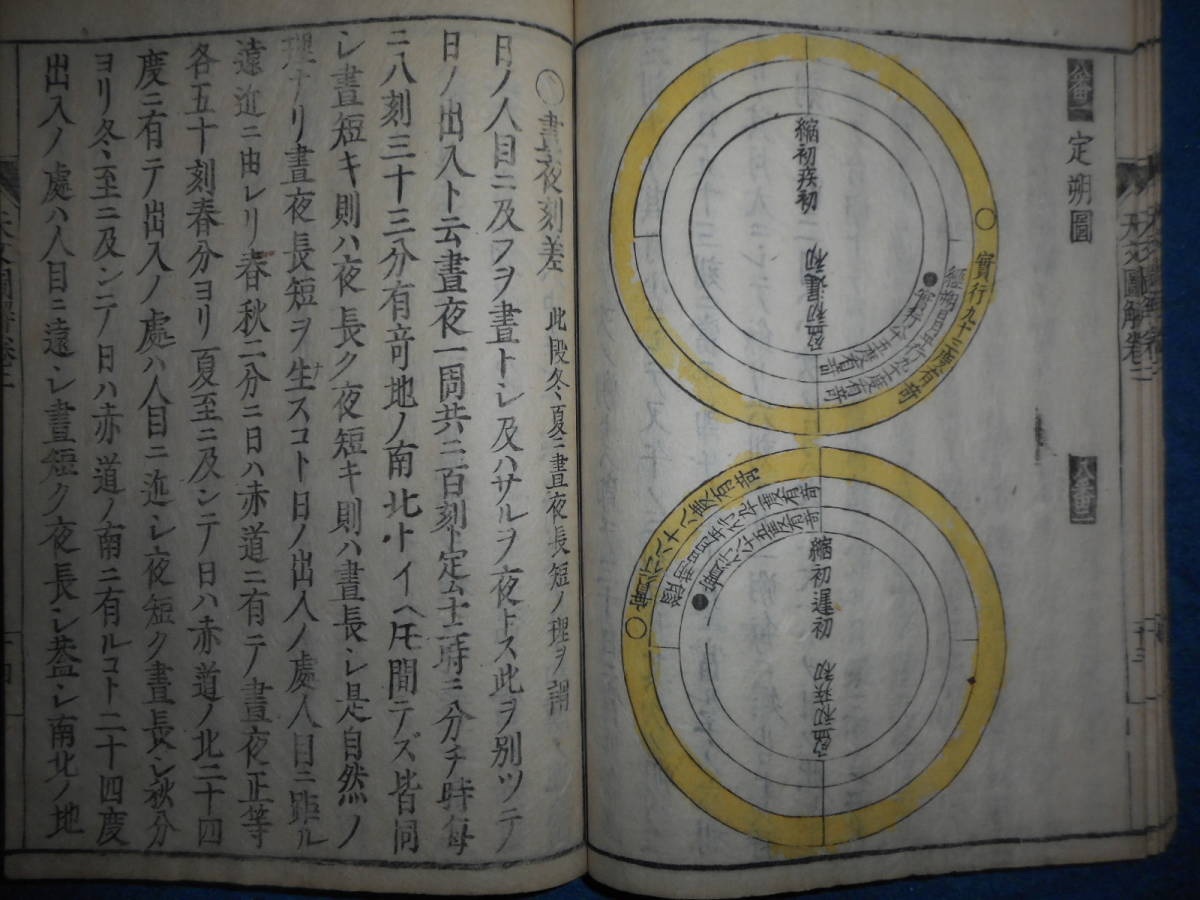 八番一
定朔圖
縮初疾初
盈初遲初
實行九十二度有竒
經朔昌日平行九十一度有竒
八番二
實行八十八度有竒
縮初遲初
盈初疾初
天文圖解卷二
十三
晝夜刻差 此段冬夏ニ晝夜長短ノ理ヲ謂
日ノ人目ニ及フヲ晝トシ及ハサルヲ夜トス此ヲ別ツニテ
日ノ出入ト云晝夜一周共ニ百刻ト定ム十二時ニ分チ時毎
ニ八刻三十三分有竒地ノ南北トイヘ𪜈間テズ皆同
シ晝短キ則ハ夜長ク夜短キ則ハ晝長シ是自然ノ
理ナリ晝夜長短ヲ生スコト日ノ出入ノ處人目ニ距ル
遠近ニ由レリ春秋二分ニ日ハ赤道ニ有テノ晝夜正等
各五十刻春分ヨリ夏至ニ及ンテ日ハ赤道ノ北二十四
度ニ有テ出入ノ處ハ人目ニ近シ夜短ク晝長シ秋分
ヨリ冬至ニ及ンテ日ハ赤道ノ南ニ有ルコト二十四度
出入ノ處ハ人目ニ遠シ晝短ク夜長シ葢シ南北ノ地